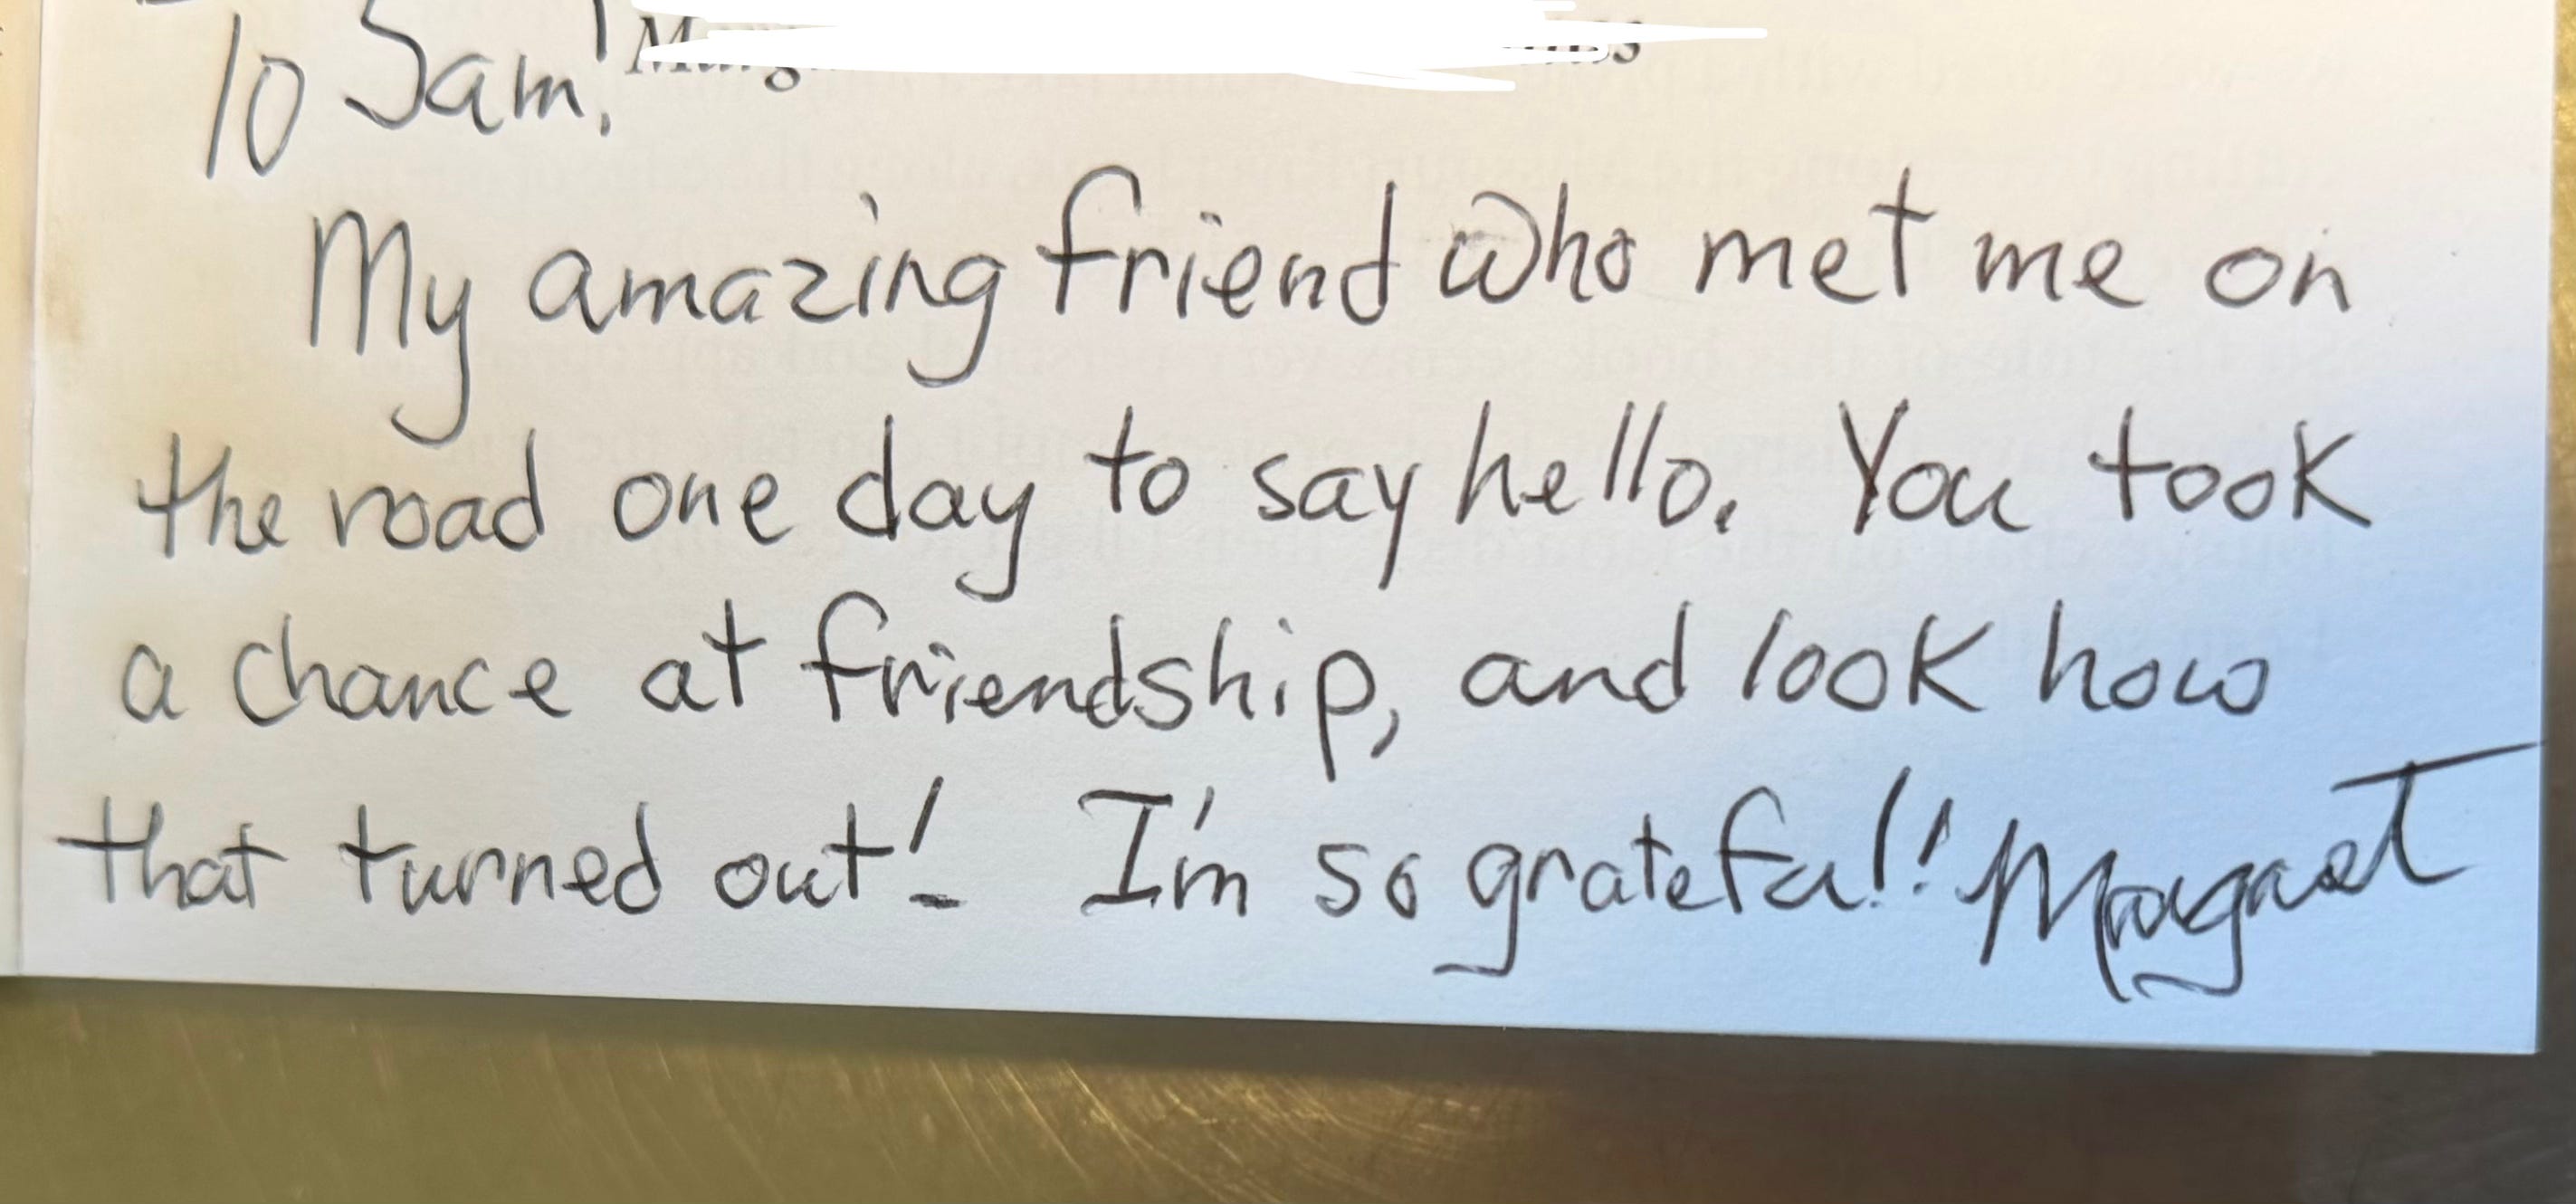 To Sam!
My amazing friend who met me on
the road one day to say hello. You took
a chance at friendship, and look how
that turned out! I'm so grateful! Margaret